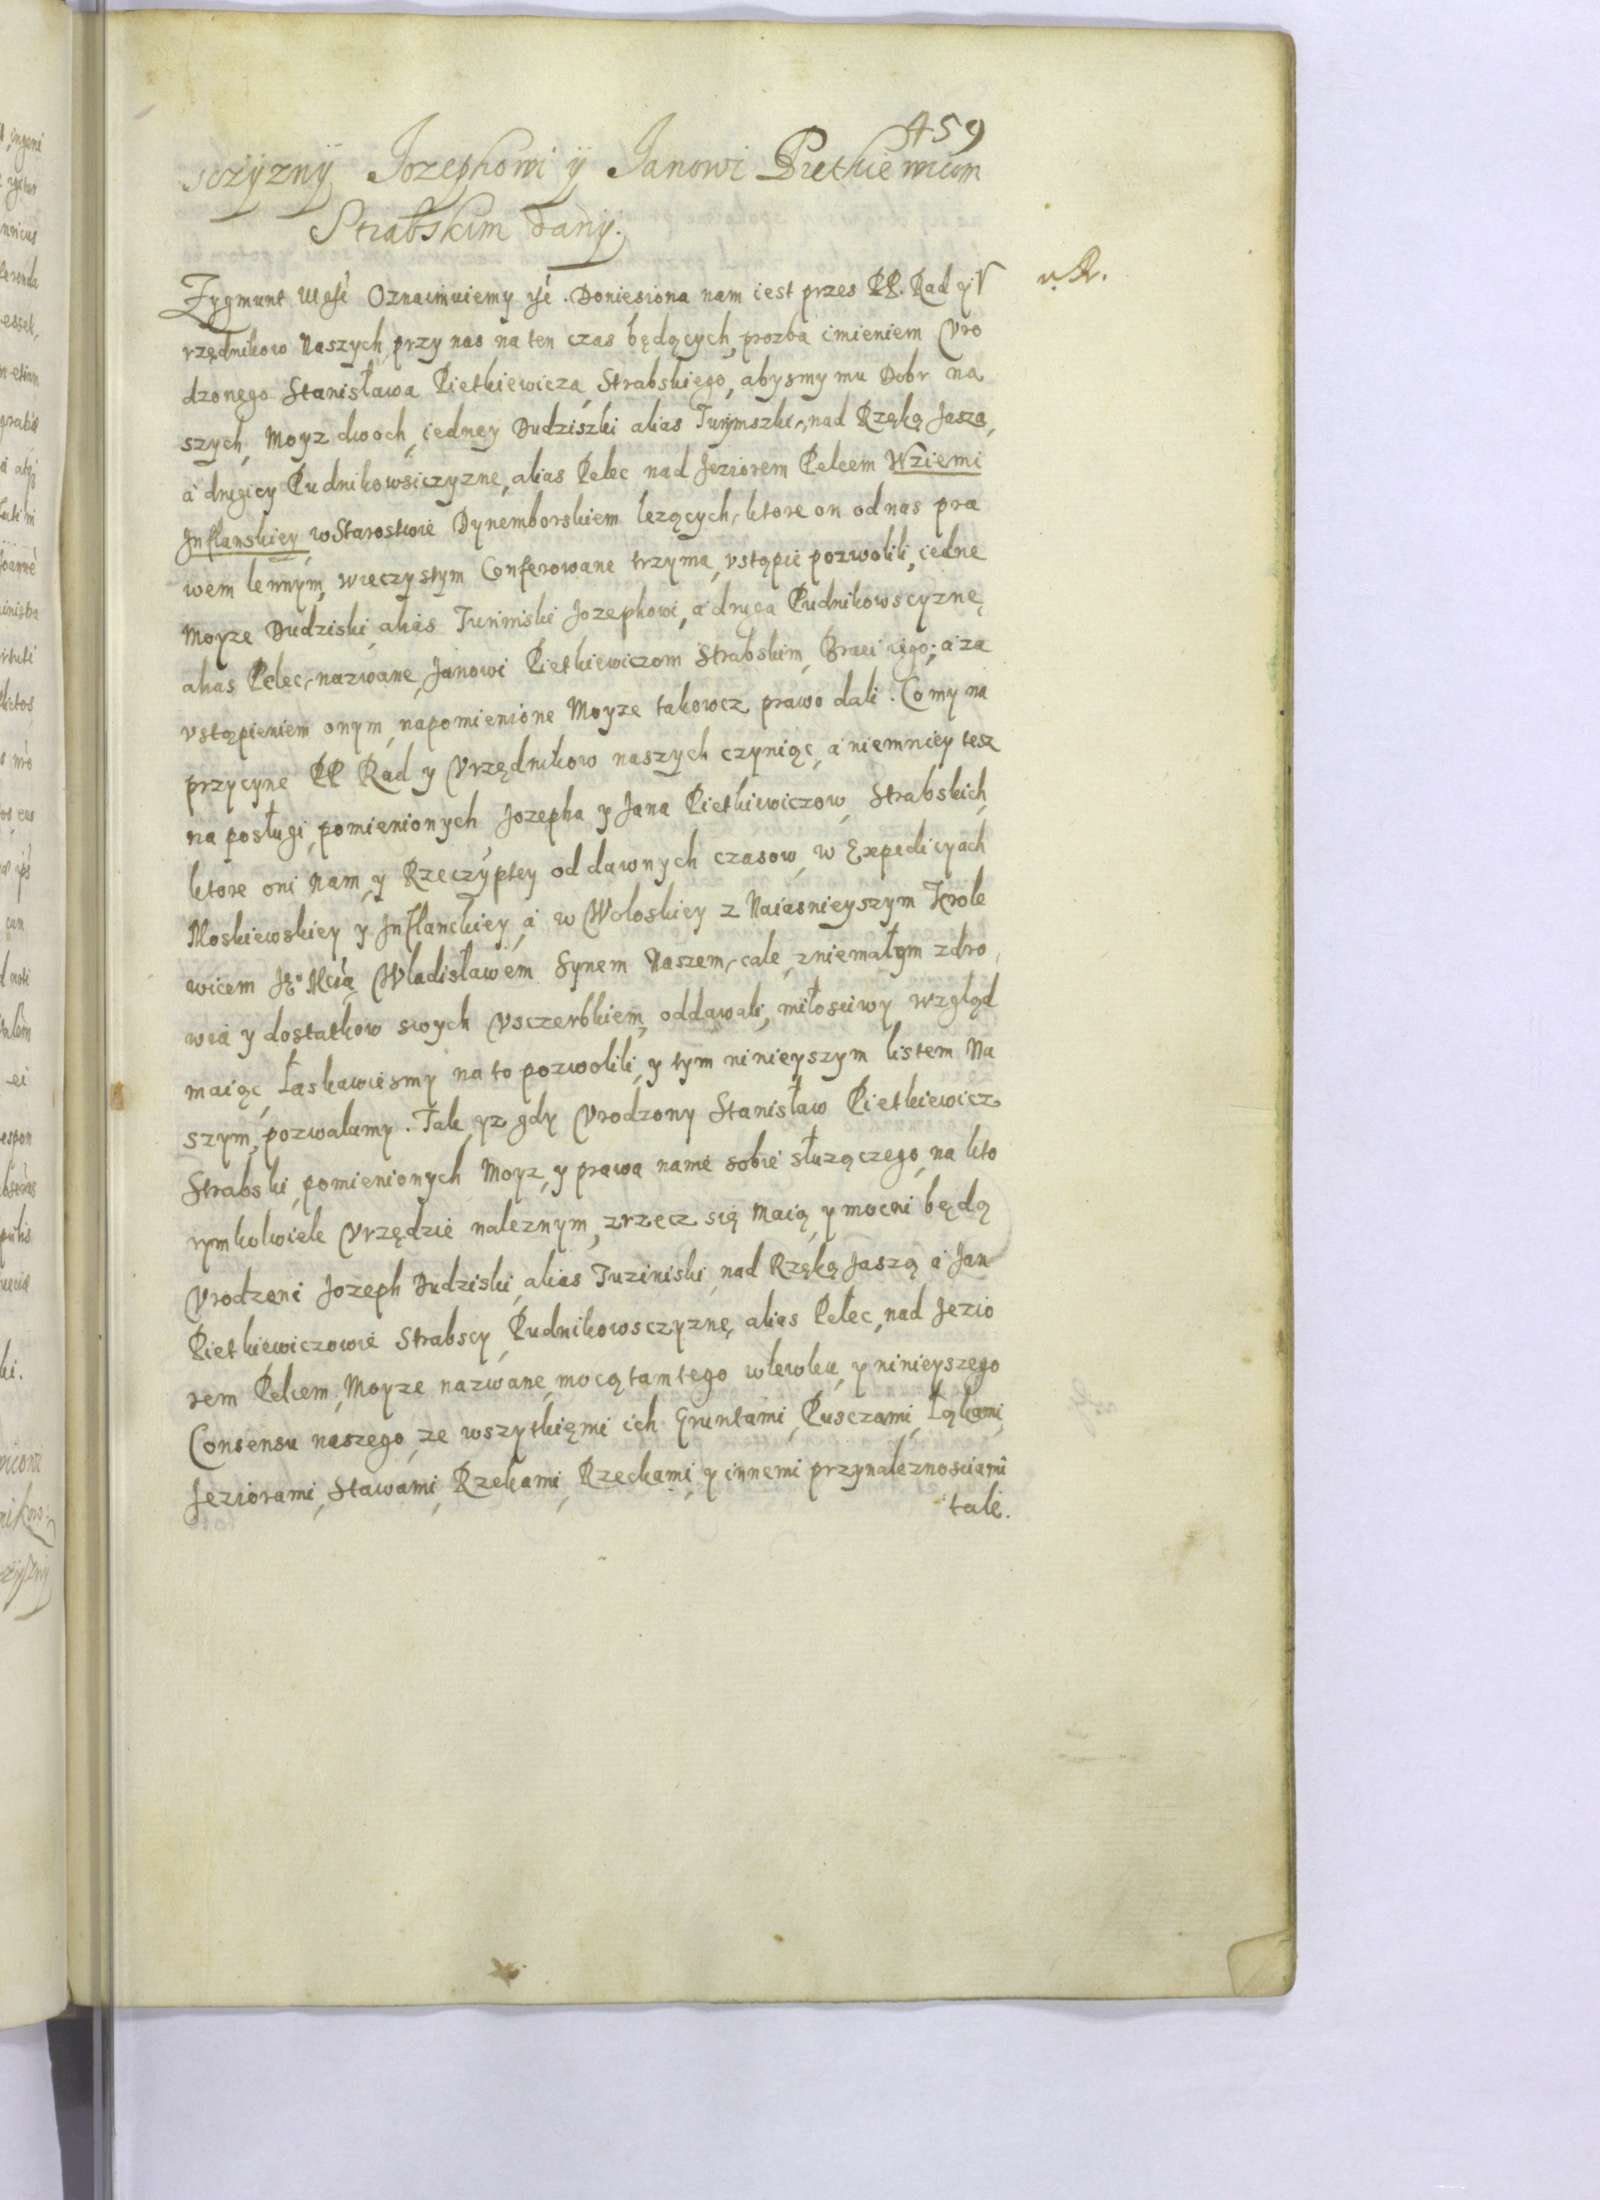 459
sczyzny Jozephowi y Janowi Pietkiewiczom
Strabskim dany.
Zygmunt etc. Oznaimuiemy etc. Doniesiona nam iest przes PP. Rad y V
rzędnikow Naszych, przy nas na ten czas będących, prozba imieniem Vro
dzonego Stanisława Pietkiewicza Strabskiego, abysmy mu Dobr na
szych, Moyz dwoch, iedney Dudziszki alias nad Rzęką Jaszą,
a drugiey Pudnikowsiczyznę, alias Pelec nad Jeziorem Pelcem Wziemi
Inflanskiey, w Starostwie Dynemborskiem lezących, ktore on od nas pra
wem lennym, wieczystym Conferowane trzyma, vstąpic pozwolili, iedne
Moyze Dudziski alias Jozephowi, a druga Pudnikowscyznę
alias Pelec, nazwane, Janowi Pietkiewiczom Strabskim, Braci iego; a za
vstąpieniem onym, napomienione Moyze takowez prawo dali. Co my na
przycyne PP Rad y Vrzędnikow naszych czyniąc, a niemniey tesz
na posługi, pomienionych Jozepha y Jana Pietkiewiczow Strabskich,
ktore oni Nam, y Rzeczyptey od dawnych czasow, w Expedicyach
Moskiewskiey y Inflanckiey, a w Woloskiey z Naiasnieyszym Krole
wicem Je° Mcią Władisławem Synem Naszem, cale, zniemałym zdro
wia y dostatkow swych Vsczerbkiem, oddawali, miłosciwy wzgląd
maiąc, Łaskawiesmy na to pozwolili, y tym ninieyszym listem Na
szym, pozwalamy. Tak yz gdy Vrodzony Stanisław Pietkiewicz
Strabski, pomienionych Moyz, y prawa namie sobie słuzączego, na kto
rymkolwiek Vrzędzie naleznym, zrzecz się Maią, y mocni będą
Vrodzeni Jozeph Dudziski, alias Tuziniski, nad Rzęką Jaszą, a Jan
Pietkiewiczowie Strabscy, Pudnikowsczyznę, alias Pełec, nad Jezio
rem Pelcem, Moyze nazwane, mocą tamtego wlewku, y ninieyszego
Consensu naszego, ze wszytkięmi ich Gruntami, Pusczami, Łąkami,
Jeziorami, Stawami, Rzekami, Rzeckami, y innemi przynaleznosciami
tak.